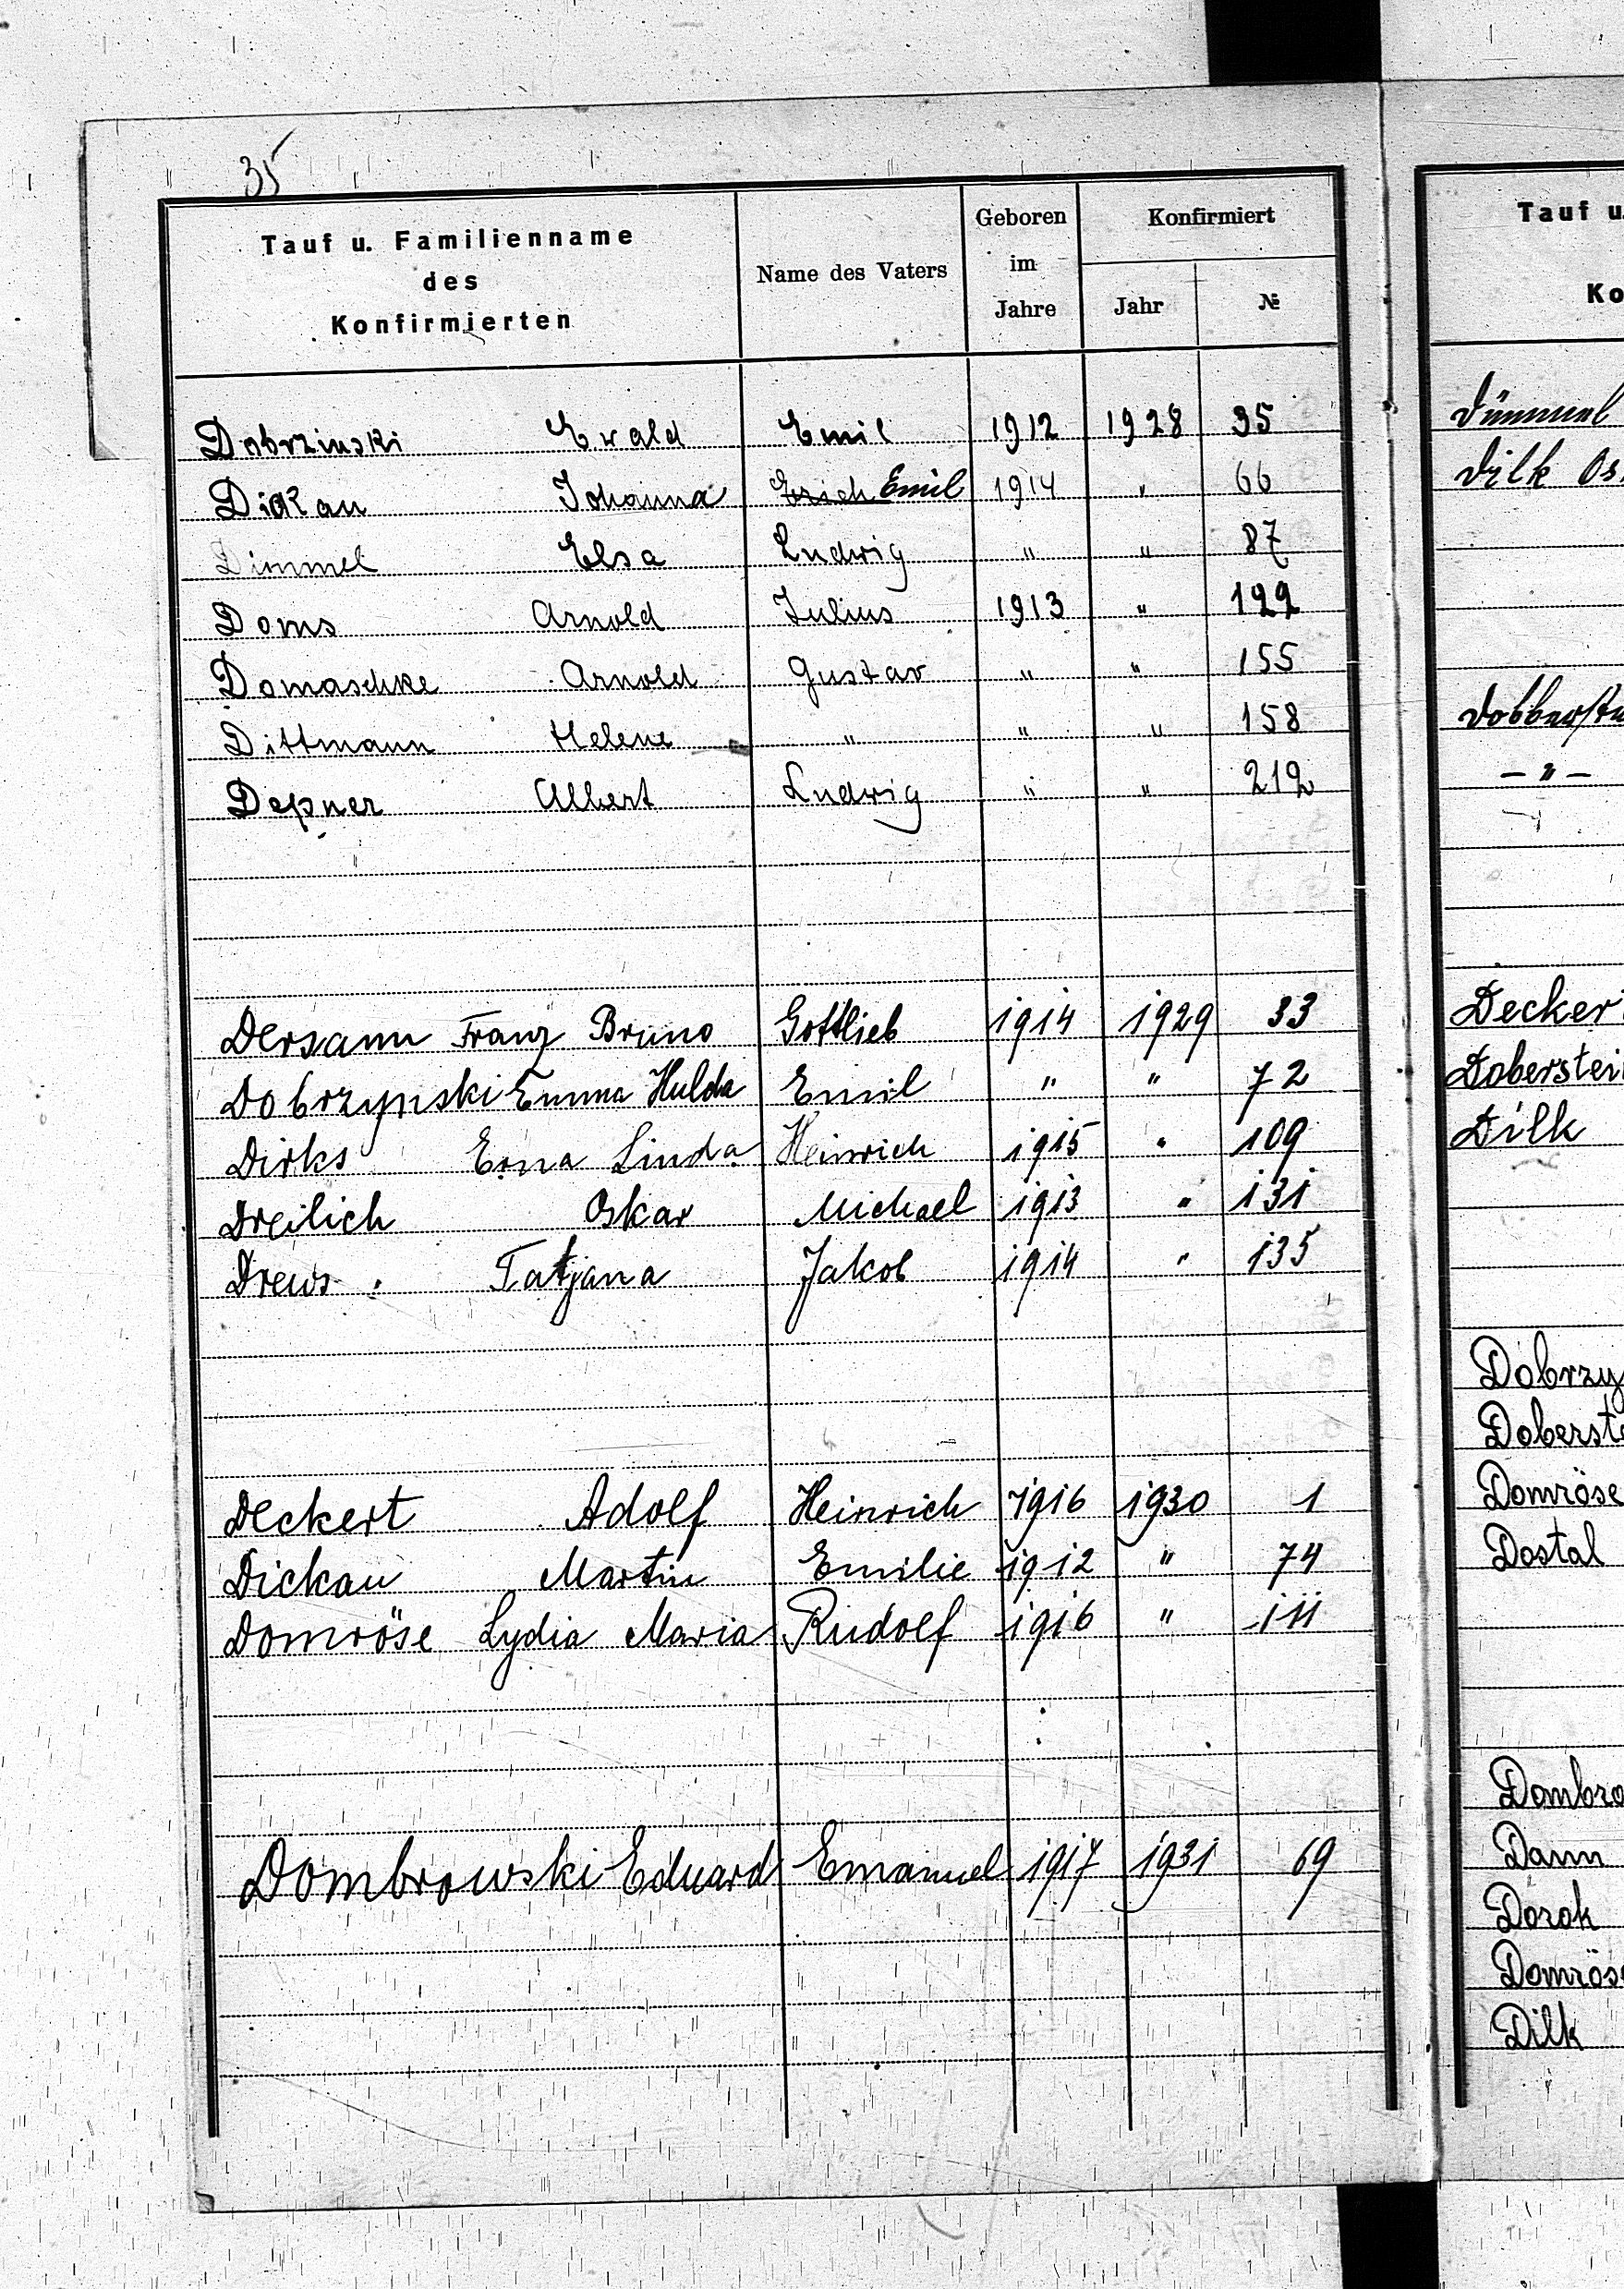 35
Tauf u. Familienname
des
Konfirmierten
Name des Vaters
Geboren
im
Jahre
Konfirmiert
Jahr
№
Dobrzinski Ewald Emil 1912 1928 35
Dickau Johanna Erich Emil 1914 " 66
Dimmel Elsa Ludwig " " 87
Doms Arnold Julius 1913 " 122
Domaschke Arnold Gustav " " 155
Dittmann Helene " " " 158
Depner Albert Ludwig " " 212
Dersann Franz Bruno Gottlieb 1914 1929 33
Dobrzynski Emma Hulda Emil " " 72
Dirks Erna Linda Heinrich 1915 " 109
Dreilich Oskar Michael 1913 " 131
Drews Tatjana Jakob 1914 " 135
Deckert Adolf Heinrich 1916 1930 1
Dickau Martin Emilie 1912 " 74
Domröse Lydia Maria Rudolf 1916 " 111
Dombrowski Eduard Emanuel 1917 1931 69
Tauf u
Ko
Dilk Os
- " -
Decker
Doberstei
Dilk
Dobrzy
Doberste
Domröse
Dostal
Dombro
Damm
Dorok
Domrös
Dilk